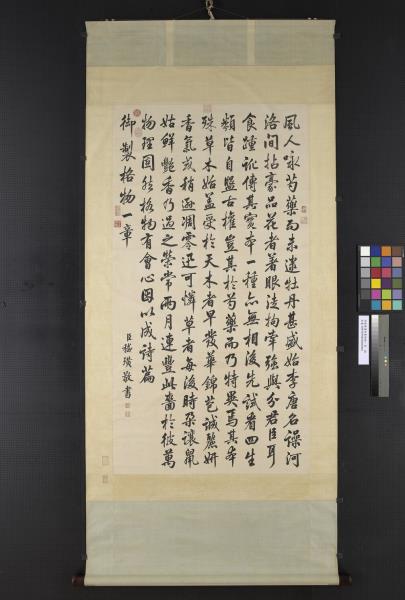 風人詠芍藥而未逮牡丹甚盛始李唐名譟河
洛間拈豪品花者著眼徒拘牽強與分君臣耳
食踵訛傳其實本一種亦無相後先試看四生
類皆自盟古權豈其於芍藥而乃特異焉其本
殊草木始盖受於天木者早發華錦芭誠麗妍
香氣或稍遜凋零迅可憐草者每後時朶讓鼠
姑鮮艷香乃過之榮常兩月連豐此嗇於彼萬
物理固然格物有會心因以成詩篇
御製格物一章
臣嵇璜敬書